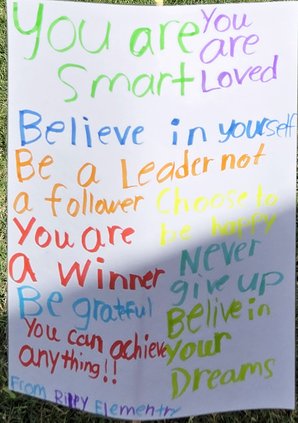 You are
Smart
You
are
Loved
Believe in yourself
Be a Leader not
a follower
Choose to
be happy
You are
a winner
Never
give up
Be grateful
Belive in
Your
Dreams
You can achieve
anything!!
From Riley Elementry